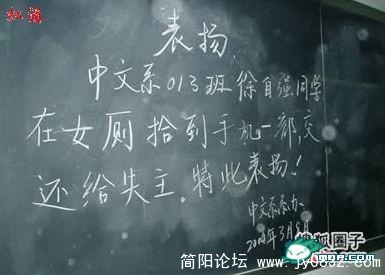 表扬
中文系013班徐自强同学
在女厕拾到手机一部,交
还给失主。特此表扬!
中文系系办
简阳论坛 www.jy0832.com
搜狐圈子